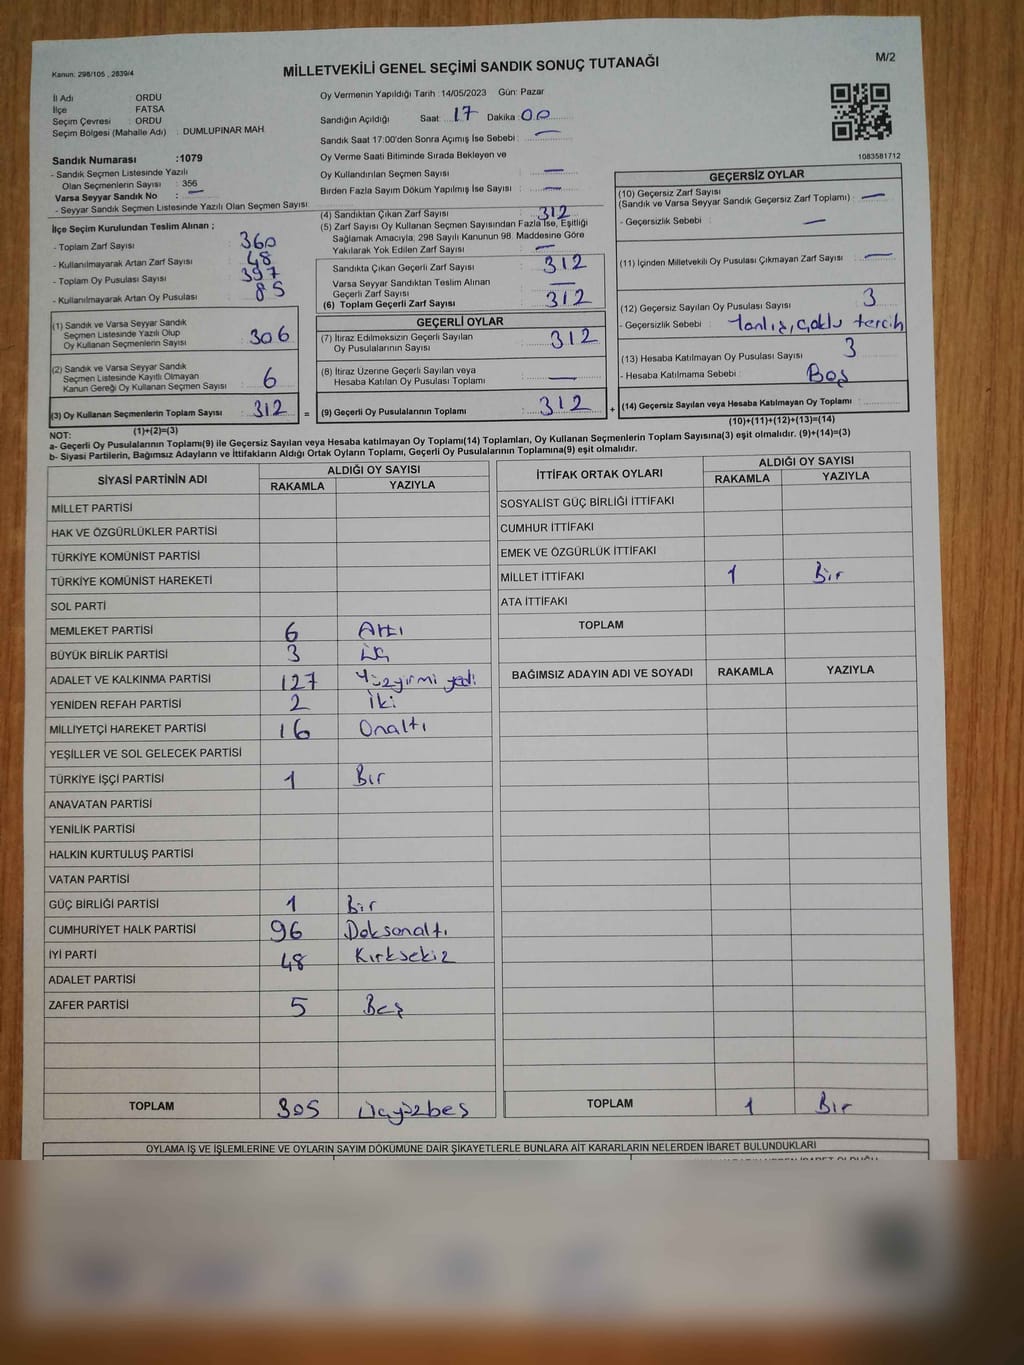 M/2
Kanun: 298/105 , 2839/4
MİLLETVEKİLİ GENEL SEÇİMİ SANDIK SONUÇ TUTANAĞI
İl Adı ORDU
İlçe FATSA
Seçim Çevresi : ORDU
Seçim Bölgesi (Mahalle Adı) : DUMLUPINAR MAH.
Sandık Numarası :1079
- Sandık Seçmen Listesinde Yazılı
Olan Seçmenlerin Sayısı : 356
Varsa Seyyar Sandık No : —
- Seyyar Sandık Seçmen Listesinde Yazılı Olan Seçmen Sayısı:
İlçe Seçim Kurulundan Teslim Alınan ;
- Toplam Zarf Sayısı : 360
- Kullanılmayarak Artan Zarf Sayısı : 48
- Toplam Oy Pusulası Sayısı : 397
- Kullanılmayarak Artan Oy Pusulası : 85
(1) Sandık ve Varsa Seyyar Sandık
Seçmen Listesinde Yazılı Olup
Oy Kullanan Seçmenlerin Sayısı : 306
(2) Sandık ve Varsa Seyyar Sandık
Seçmen Listesinde Kayıtlı Olmayan
Kanun Gereği Oy Kullanan Seçmen Sayısı : 6
(3) Oy Kullanan Seçmenlerin Toplam Sayısı : 312 =
(1)+(2)=(3)
Oy Vermenin Yapıldığı Tarih :14/05/2023 Gün: Pazar
Sandığın Açıldığı Saat: 17 Dakika: 00
Sandık Saat 17:00'den Sonra Açımış İse Sebebi : —
Oy Verme Saati Bitiminde Sırada Bekleyen ve
Oy Kullandırılan Seçmen Sayısı : —
Birden Fazla Sayım Döküm Yapılmış İse Sayısı : —
(4) Sandıktan Çıkan Zarf Sayısı : 312
(5) Zarf Sayısı Oy Kullanan Seçmen Sayısından Fazla İse, Eşitliği
Sağlamak Amacıyla; 298 Sayılı Kanunun 98. Maddesine Göre
Yakılarak Yok Edilen Zarf Sayısı : —
Sandıkta Çıkan Geçerli Zarf Sayısı : 312
Varsa Seyyar Sandıktan Teslim Alınan
Geçerli Zarf Sayısı : —
(6) Toplam Geçerli Zarf Sayısı : 312
GEÇERLİ OYLAR
(7) İtiraz Edilmeksizin Geçerli Sayılan
Oy Pusulalarının Sayısı : 312
(8) İtiraz Üzerine Geçerli Sayılan veya
Hesaba Katılan Oy Pusulası Toplamı : —
(9) Geçerli Oy Pusulalarının Toplamı : 312 +
1083581712
GEÇERSİZ OYLAR
(10) Geçersiz Zarf Sayısı
(Sandık ve Varsa Seyyar Sandık Geçersiz Zarf Toplamı) : —
- Geçersizlik Sebebi : —
(11) İçinden Milletvekili Oy Pusulası Çıkmayan Zarf Sayısı : —
(12) Geçersiz Sayılan Oy Pusulası Sayısı : 3
- Geçersizlik Sebebi : Yanlış, çoklu tercih
(13) Hesaba Katılmayan Oy Pusulası Sayısı : 3
- Hesaba Katılmama Sebebi : Boş
(14) Geçersiz Sayılan veya Hesaba Katılmayan Oy Toplamı :
(10)+(11)+(12)+(13)=(14)
NOT:
a- Geçerli Oy Pusulalarının Toplamı(9) ile Geçersiz Sayılan veya Hesaba katılmayan Oy Toplamı(14) Toplamları, Oy Kullanan Seçmenlerin Toplam Sayısına(3) eşit olmalıdır. (9)+(14)=(3)
b- Siyasi Partilerin, Bağımsız Adayların ve İttifakların Aldığı Ortak Oyların Toplamı, Geçerli Oy Pusulalarının Toplamına(9) eşit olmalıdır.
SİYASİ PARTİNİN ADI ALDIĞI OY SAYISI
RAKAMLA YAZIYLA
MİLLET PARTİSİ
HAK VE ÖZGÜRLÜKLER PARTİSİ
TÜRKİYE KOMÜNİST PARTİSİ
TÜRKİYE KOMÜNİST HAREKETİ
SOL PARTİ
MEMLEKET PARTİSİ 6 Altı
BÜYÜK BİRLİK PARTİSİ 3 Üç
ADALET VE KALKINMA PARTİSİ 127 Yüzyirmi yedi
YENİDEN REFAH PARTİSİ 2 İki
MİLLİYETÇİ HAREKET PARTİSİ 16 Onaltı
YEŞİLLER VE SOL GELECEK PARTİSİ
TÜRKİYE İŞÇİ PARTİSİ 1 Bir
ANAVATAN PARTİSİ
YENİLİK PARTİSİ
HALKIN KURTULUŞ PARTİSİ
VATAN PARTİSİ
GÜÇ BİRLİĞİ PARTİSİ 1 Bir
CUMHURİYET HALK PARTİSİ 96 Doksanaltı
İYİ PARTİ 48 Kırksekiz
ADALET PARTİSİ
ZAFER PARTİSİ 5 Beş
TOPLAM 305 Üçyüzbeş
İTTİFAK ORTAK OYLARI ALDIĞI OY SAYISI
RAKAMLA YAZIYLA
SOSYALİST GÜÇ BİRLİĞİ İTTİFAKI
CUMHUR İTTİFAKI
EMEK VE ÖZGÜRLÜK İTTİFAKI
MİLLET İTTİFAKI 1 Bir
ATA İTTİFAKI
TOPLAM
BAĞIMSIZ ADAYIN ADI VE SOYADI RAKAMLA YAZIYLA
TOPLAM 1 Bir
OYLAMA İŞ VE İŞLEMLERİNE VE OYLARIN SAYIM DÖKÜMÜNE DAİR ŞİKAYETLERLE BUNLARA AİT KARARLARIN NELERDEN İBARET BULUNDUKLARI